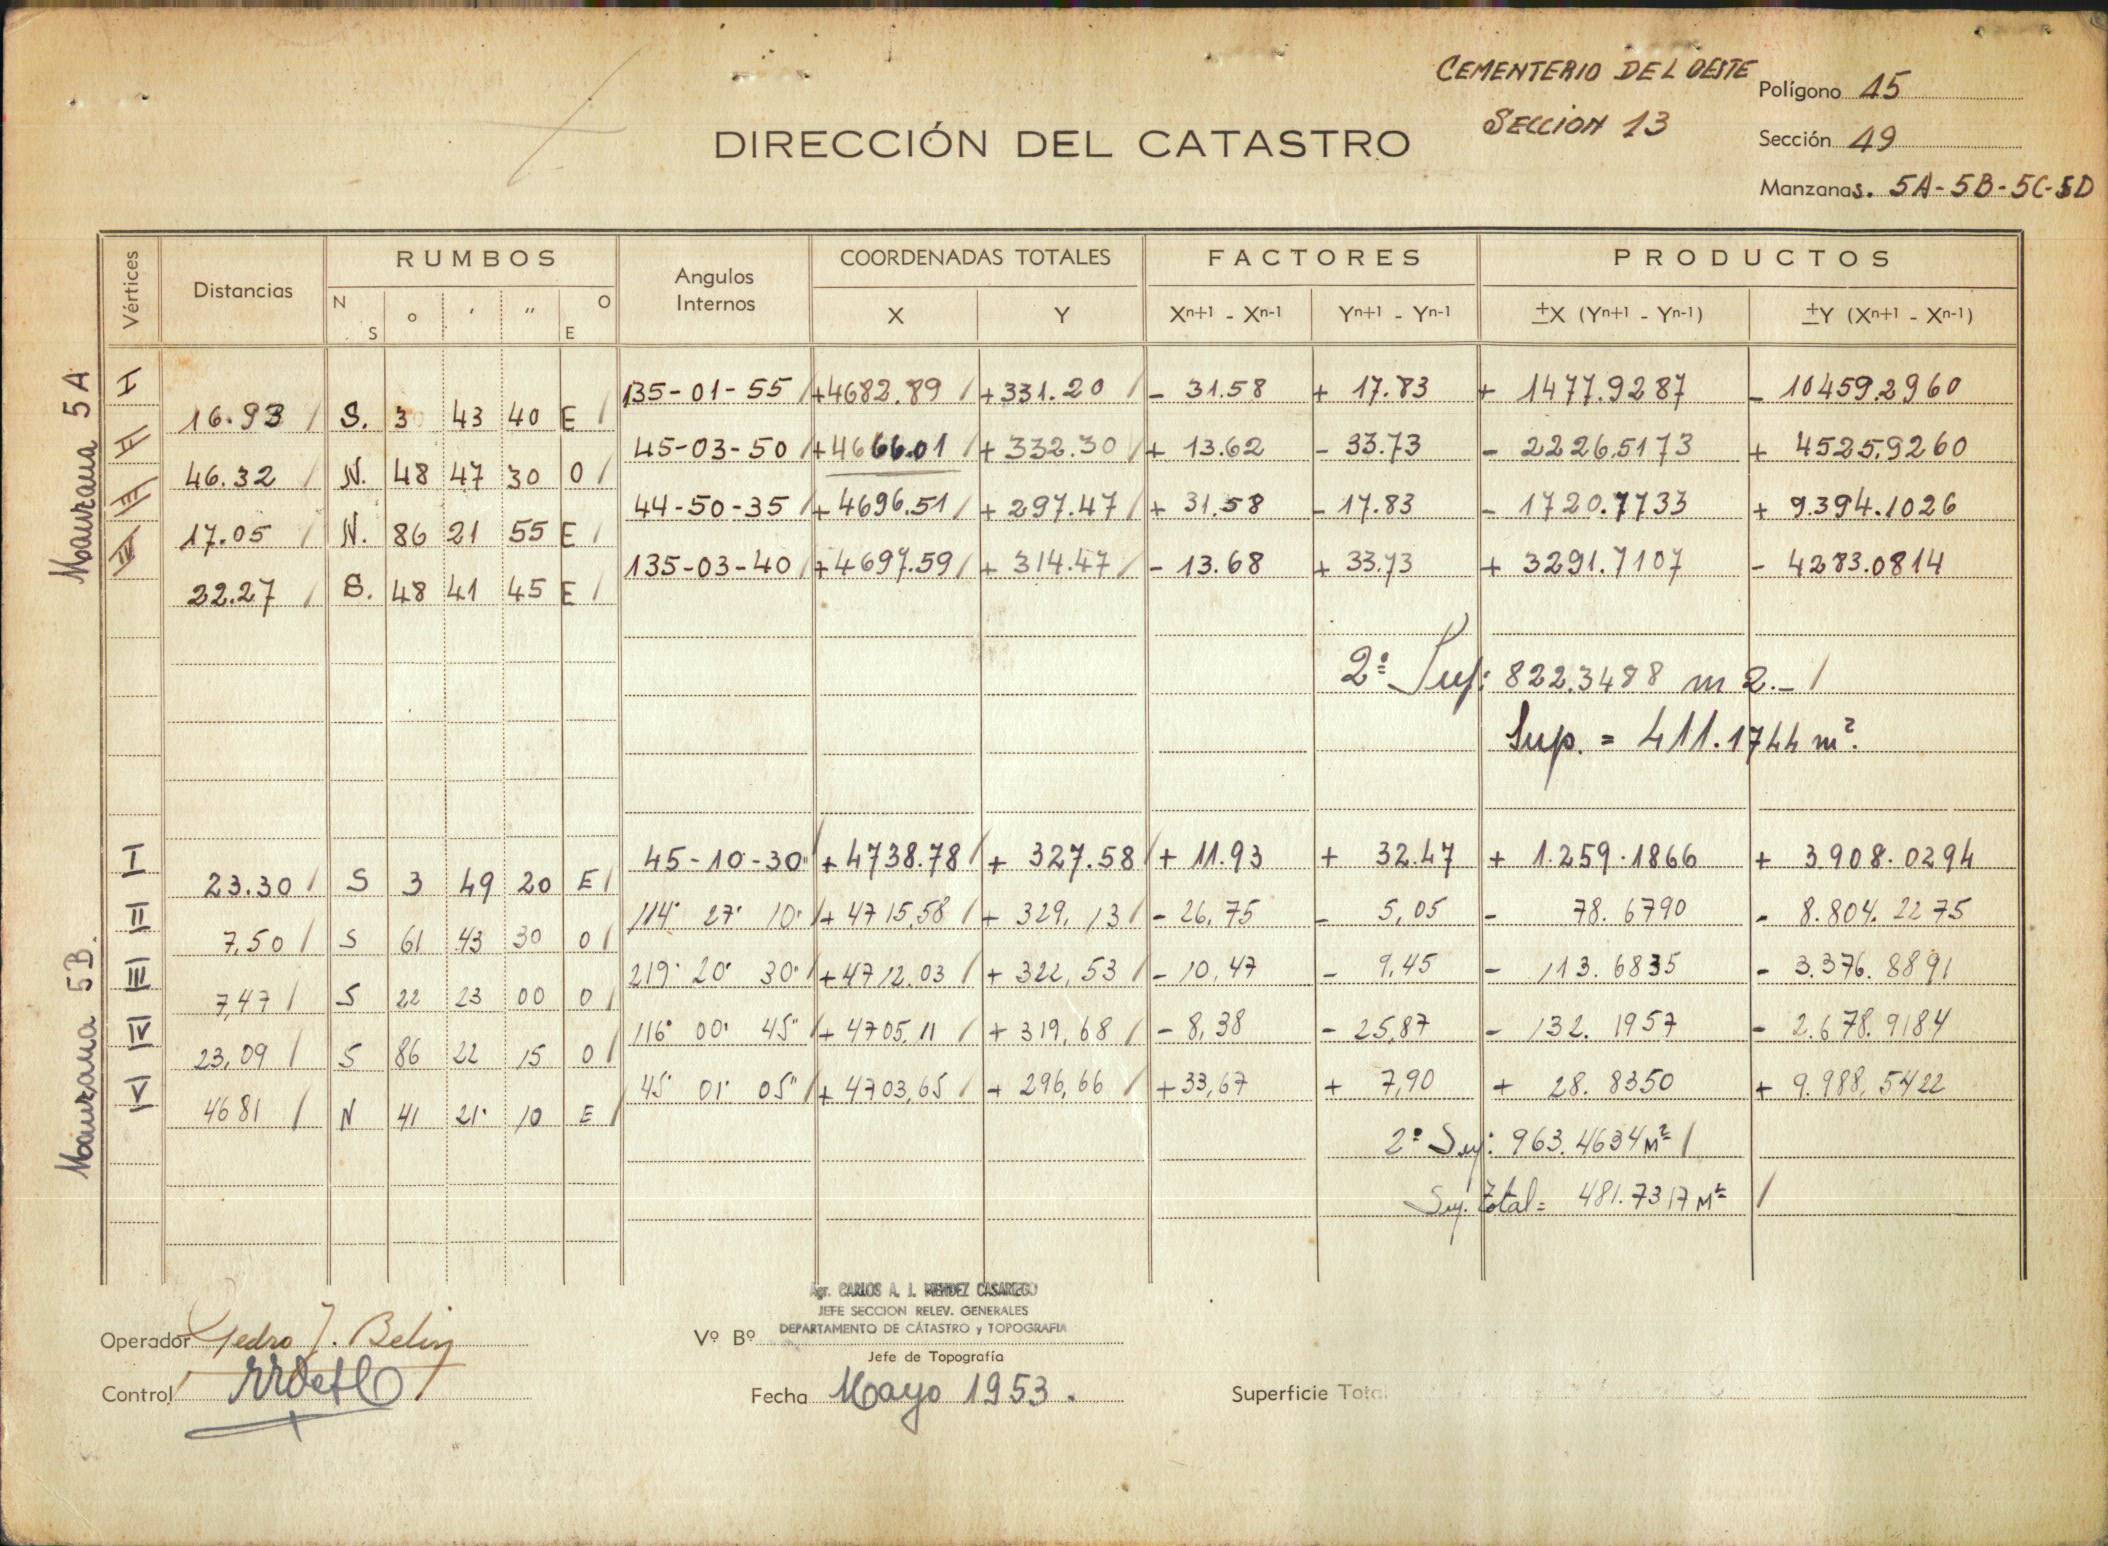 CEMENTERIO DEL OESTE
SECCION 13
Polígono 15
DIRECCIÓN DEL CATASTRO
Sección 49
Manzanas. 5A-5B-5C-5D
Vértices Distancias RUMBOS Angulos Internos COORDENADAS TOTALES FACTORES PRODUCTOS
N S o ′ ″ O E X Y Xn+1 - Xn-1 Yn+1 - Yn-1 ±X (Yn+1 - Yn-1) ±Y (Xn+1 - Xn-1)
Manzana 5A
I 135-01-55 +4682.89 +331.20 - 31.58 + 17.83 + 1477.9287 - 10459.2960
16.93 S. 3 43 40 E
II 45-03-50 +4666.01 + 332.30 + 13.62 - 33.73 - 2226.5173 + 4525.9260
46.32 N. 48 47 30 O
III 44-50-35 + 4696.51 + 297.47 + 31.58 - 17.83 - 1720.7733 + 9.394.1026
17.05 N. 86 21 55 E
IV 135-03-40 +4697.59 + 314.47 - 13.68 + 33.73 + 3291.7107 - 4283.0814
22.27 S. 48 41 45 E
2º Sup: 822.3488 m2.-
Sup. = 411.1744 m².
Manzana 5B.
I 45-10-30" + 4738.78 + 327.58 + 11.93 + 32.47 + 1.259.1866 + 3908.0294
23.30 S 3 49 20 E
II 114° 27' 10" + 4715,58 + 329,13 - 26,75 - 5,05 - 78.6790 - 8.804.2275
7,50 S 61 43 30 O
III 219° 20' 30" +4712.03 + 322,53 - 10,47 - 9,45 - 113.6835 - 3.376.8891
7,47 S 22 23 00 O
IV 116° 00' 45" + 4705,11 + 319,68 - 8,38 - 25,87 - 132.1957 - 2.678.9184
23,09 S 86 22 15 O
V 45° 01' 05" + 4703,65 + 296,66 +33,67 + 7,90 + 28.8350 + 9.988,5422
46 81 N 41 21' 10 E
2º Sup: 963.4634 M²
Sup. Total = 481.7317 M²
Agr. CARLOS A. J. MENDEZ CASARIEGO
JEFE SECCION RELEV. GENERALES
DEPARTAMENTO DE CATASTRO y TOPOGRAFIA
Operador Pedro J.
Vº Bº
Jefe de Topografía
Control
Fecha Mayo 1953.
Superficie Total